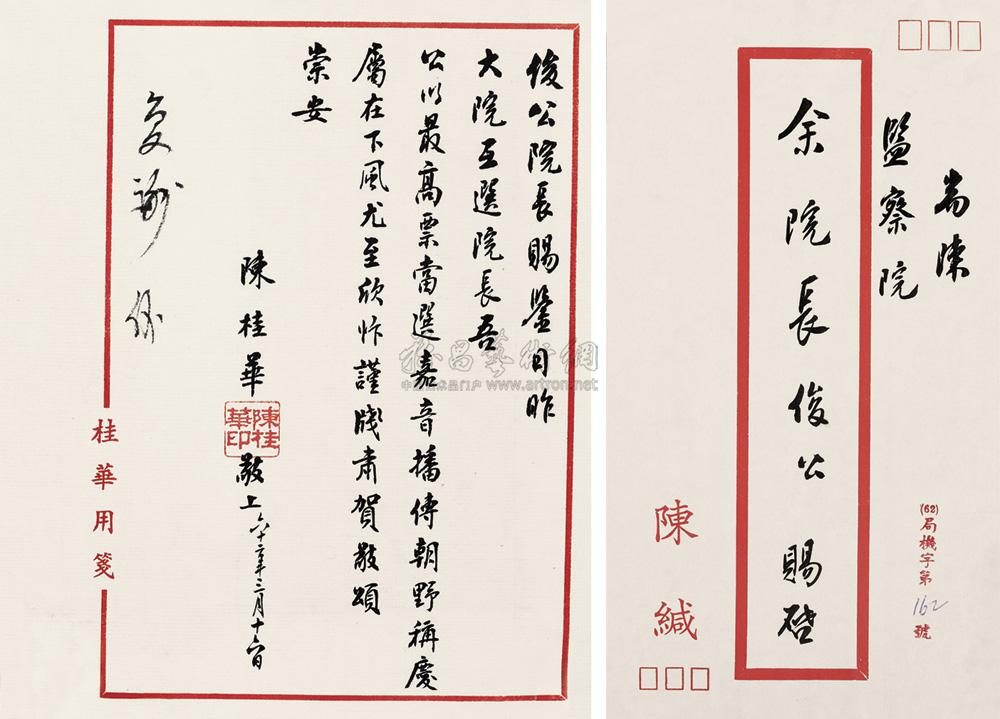 俊公院長賜鑒日昨
大院互選院長吾
公以最高票當選嘉音播傳朝野稱慶
屬在下風尤至欣忭謹牋肅賀敬頌
崇安
陳桂華
陳桂華印
敬上六十二年三月十六日
復謝
桂華用箋
尚陳
監察院
余院長俊公賜啓
陳緘
(62)局機字第162號
www.artron.net